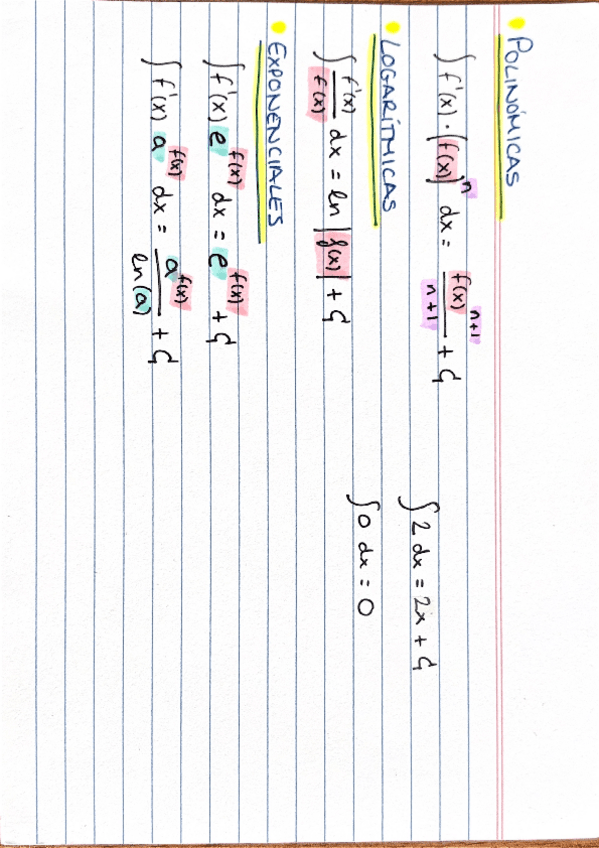 • POLINÓMICAS
∫ f'(x) · (f(x))ⁿ dx = f(x)ⁿ⁺¹ / n+1 + C
∫ 2 dx = 2x + C
• LOGARÍTMICAS
∫ 0 dx = 0
∫ f'(x) / f(x) dx = ln |f(x)| + C
• EXPONENCIALES
∫ f'(x) e^f(x) dx = e^f(x) + C
∫ f'(x) a^f(x) dx = a^f(x) / ln(a) + C